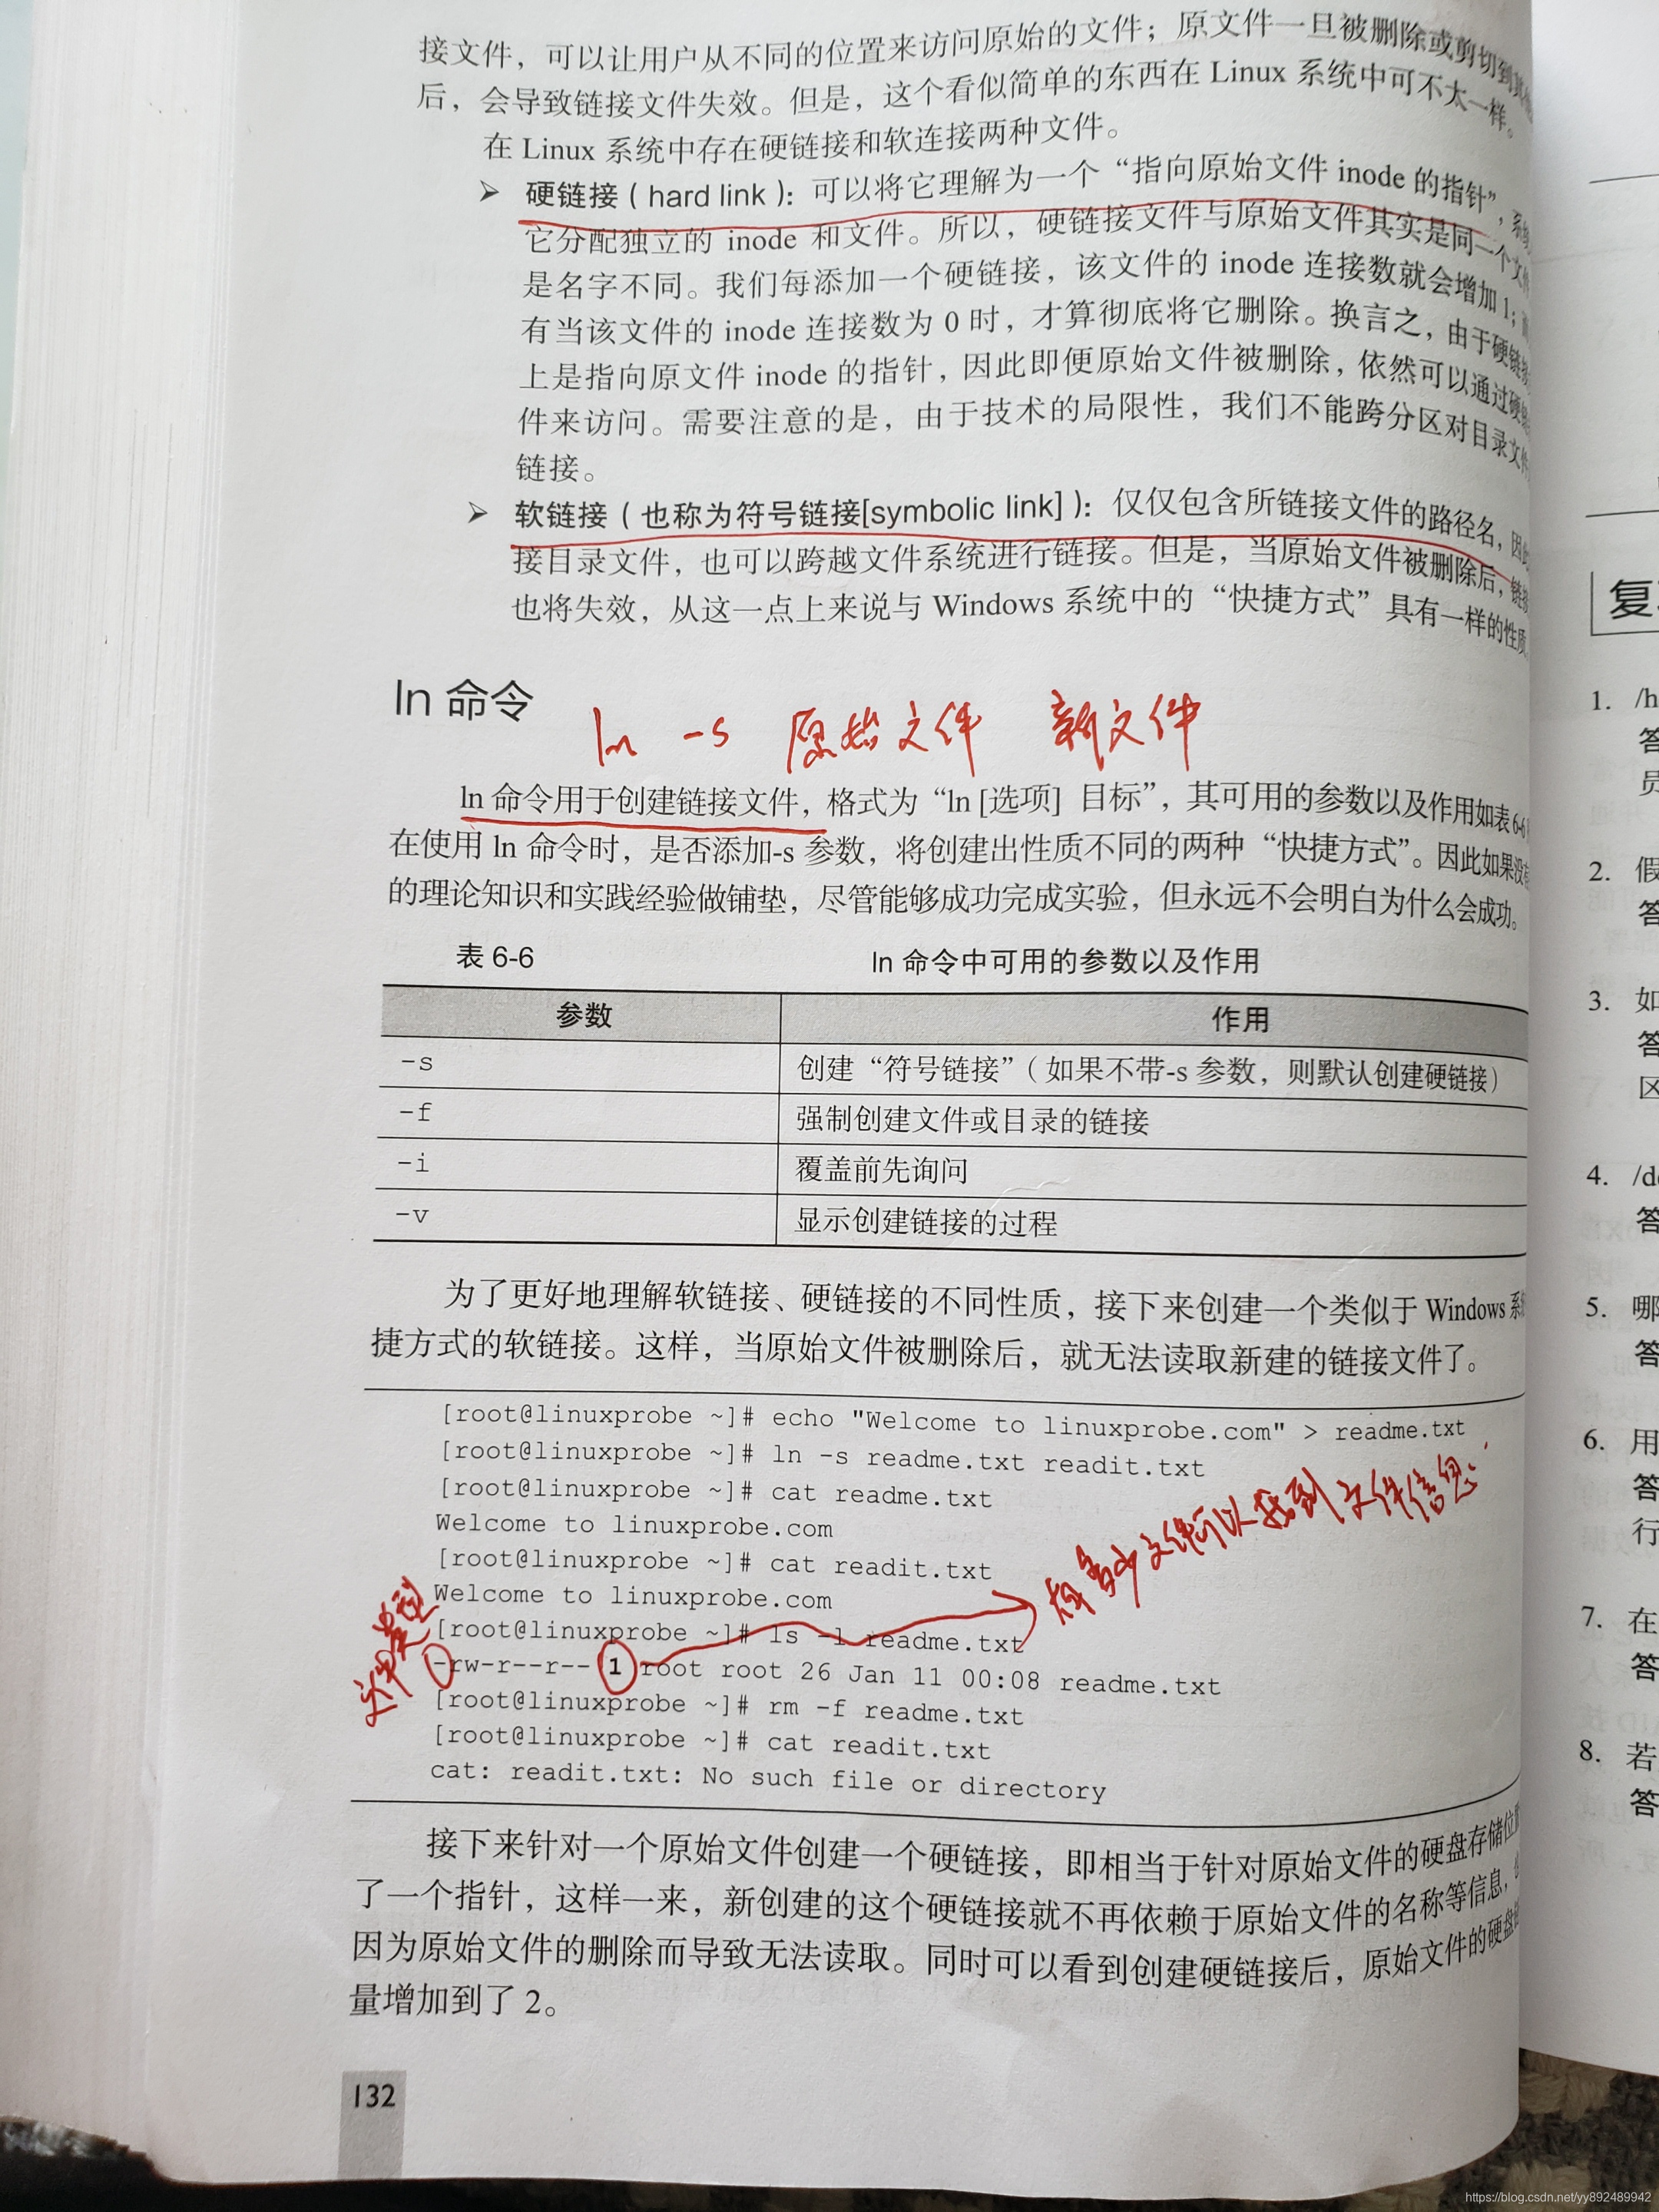 接文件，可以让用户从不同的位置来访问原始的文件；原文件一旦被删除或剪切到其他
后，会导致链接文件失效。但是，这个看似简单的东西在 Linux 系统中可不太一样。
在 Linux 系统中存在硬链接和软连接两种文件。
➢ 硬链接（hard link）：可以将它理解为一个“指向原始文件 inode 的指针”，系统
它分配独立的 inode 和文件。所以，硬链接文件与原始文件其实是同一个文件
是名字不同。我们每添加一个硬链接，该文件的 inode 连接数就会增加 1；
有当该文件的 inode 连接数为 0 时，才算彻底将它删除。换言之，由于硬链接
上是指向原文件 inode 的指针，因此即便原始文件被删除，依然可以通过硬链
件来访问。需要注意的是，由于技术的局限性，我们不能跨分区对目录文件
链接。
➢ 软链接（也称为符号链接[symbolic link]）：仅仅包含所链接文件的路径名，因此
接目录文件，也可以跨越文件系统进行链接。但是，当原始文件被删除后，链接
也将失效，从这一点上来说与 Windows 系统中的“快捷方式”具有一样的性质
ln 命令
ln -s 原始文件 新文件
ln 命令用于创建链接文件，格式为“ln [选项] 目标”，其可用的参数以及作用如表 6-6
在使用 ln 命令时，是否添加-s 参数，将创建出性质不同的两种“快捷方式”。因此如果没有
的理论知识和实践经验做铺垫，尽管能够成功完成实验，但永远不会明白为什么会成功。
表 6-6 ln 命令中可用的参数以及作用
参数 作用
-s 创建“符号链接”（如果不带-s 参数，则默认创建硬链接）
-f 强制创建文件或目录的链接
-i 覆盖前先询问
-v 显示创建链接的过程
为了更好地理解软链接、硬链接的不同性质，接下来创建一个类似于 Windows 系统
捷方式的软链接。这样，当原始文件被删除后，就无法读取新建的链接文件了。
[root@linuxprobe ~]# echo "Welcome to linuxprobe.com" > readme.txt
[root@linuxprobe ~]# ln -s readme.txt readit.txt
[root@linuxprobe ~]# cat readme.txt
Welcome to linuxprobe.com
[root@linuxprobe ~]# cat readit.txt
Welcome to linuxprobe.com
有多少文件可以找到文件信息
[root@linuxprobe ~]# ls -l readme.txt
文件类型
-rw-r--r-- 1 root root 26 Jan 11 00:08 readme.txt
[root@linuxprobe ~]# rm -f readme.txt
[root@linuxprobe ~]# cat readit.txt
cat: readit.txt: No such file or directory
接下来针对一个原始文件创建一个硬链接，即相当于针对原始文件的硬盘存储位置
了一个指针，这样一来，新创建的这个硬链接就不再依赖于原始文件的名称等信息，
因为原始文件的删除而导致无法读取。同时可以看到创建硬链接后，原始文件的硬盘
量增加到了 2。
132
复
1. /h
答
员
2. 假
答
3. 如
答
区
4. /d
答
5. 哪
答
6. 用
答
行
7. 在
答
8. 若
答
https://blog.csdn.net/yy892489942